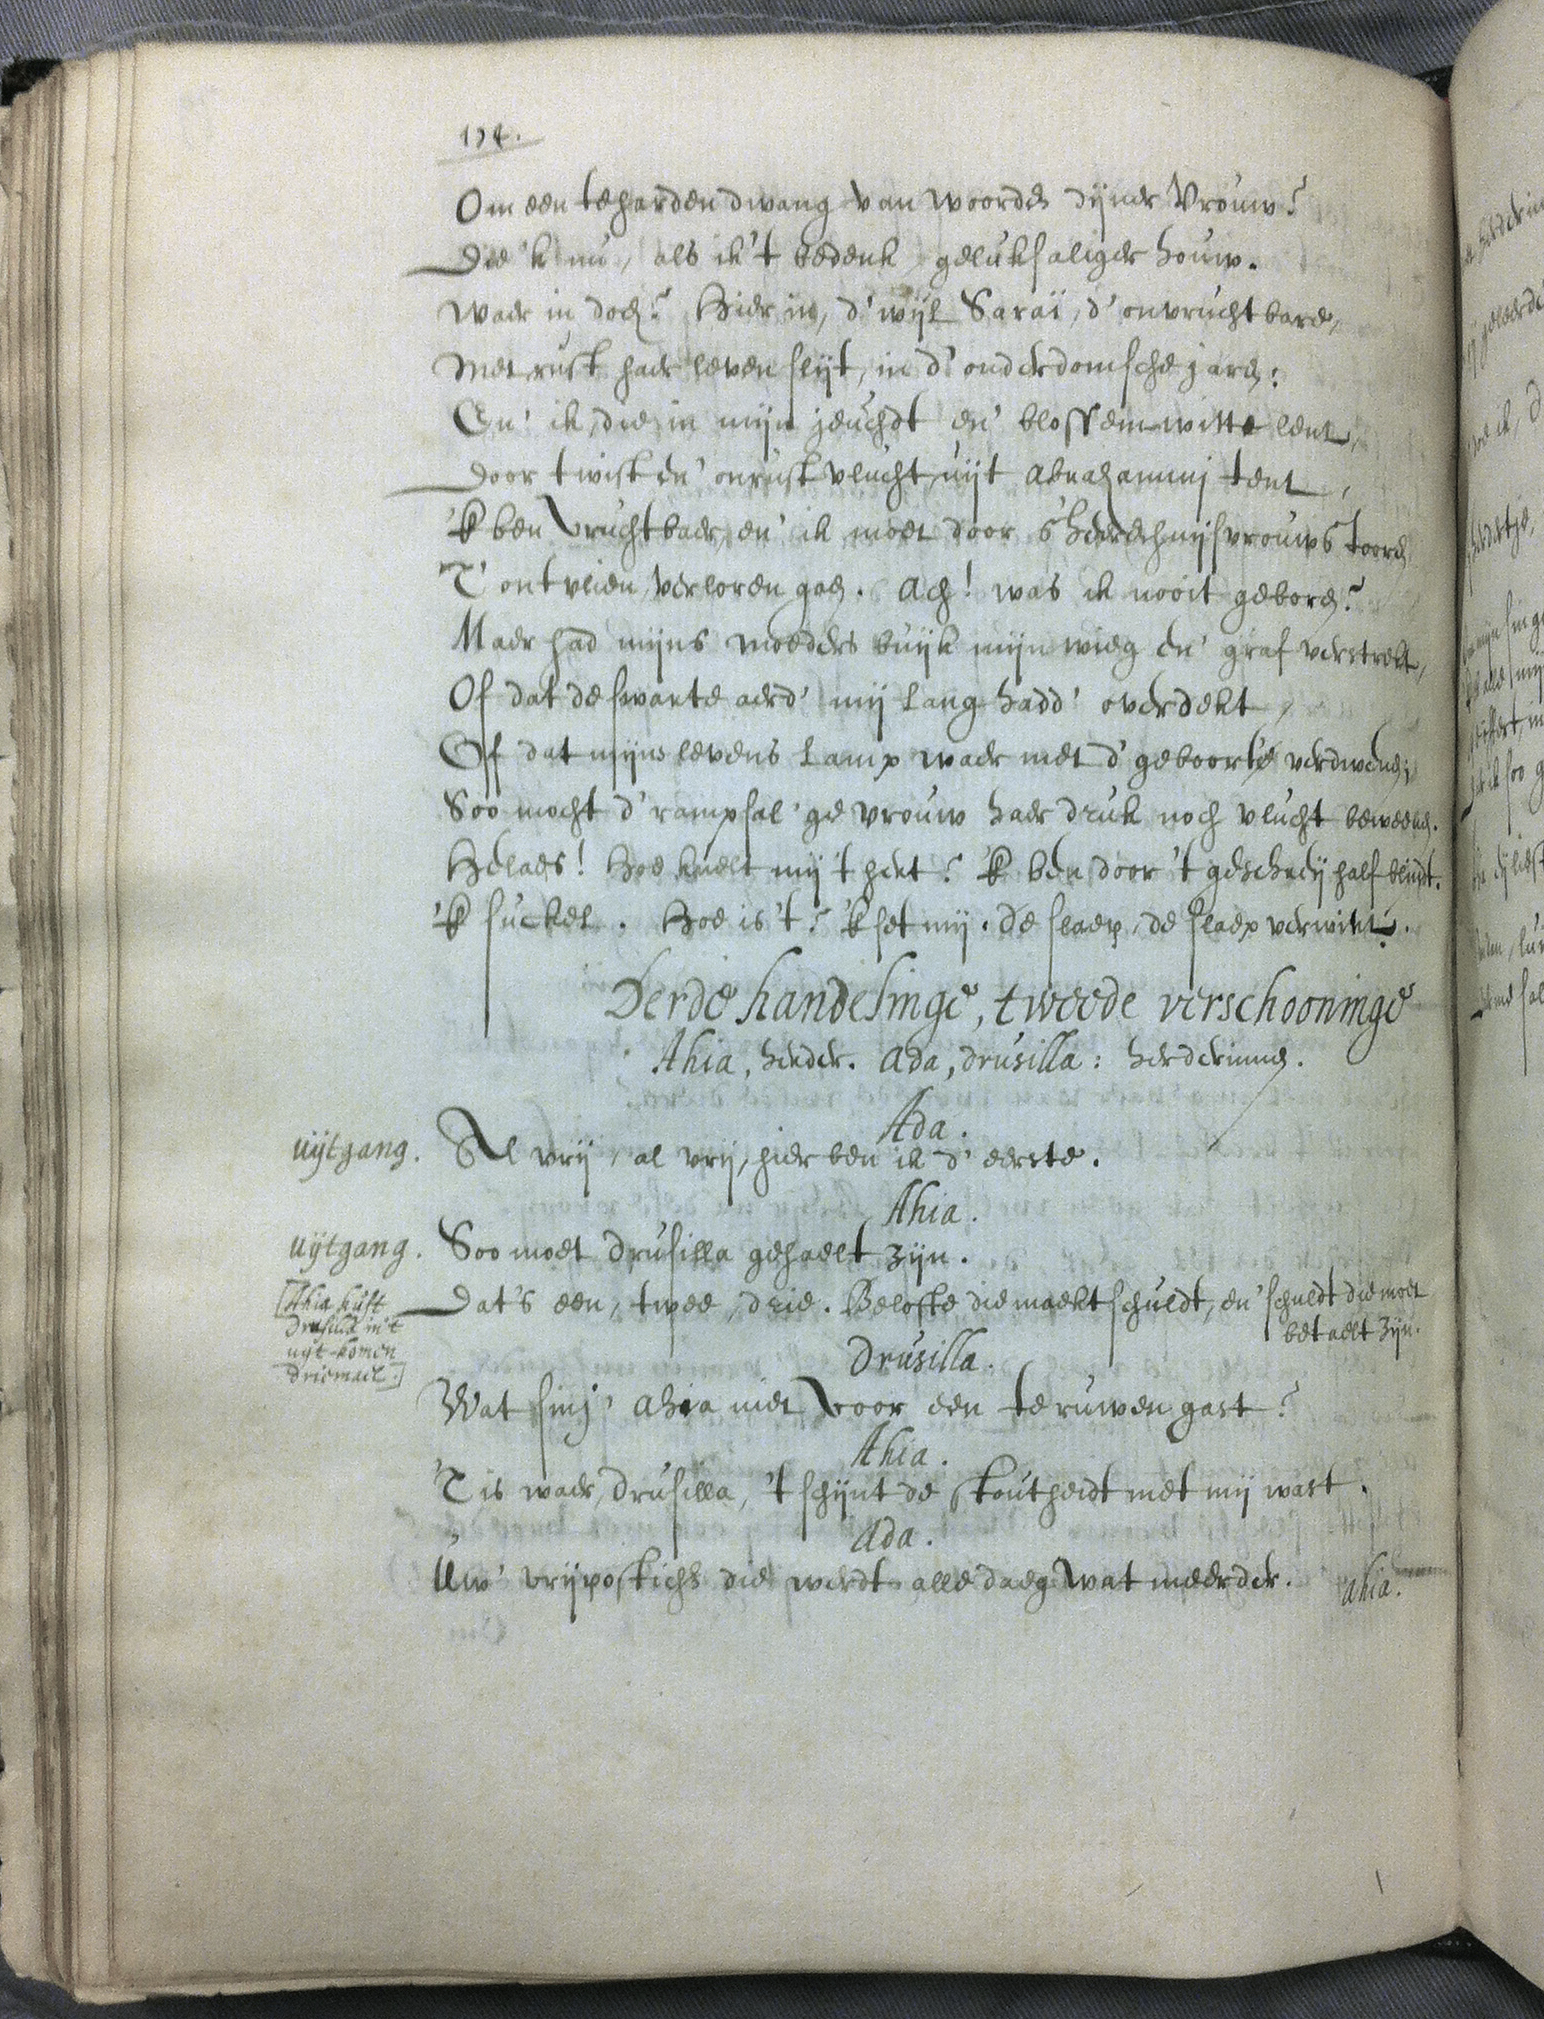 174.
Om een te harden dwang van woorden dijner Vrouw?
Die 'k nu, als ik 't bedenk geluksaliger houw.
Waer in doch? Hier in, d'wijl Saraï, d'onvruchtbare,
Met rust haer leven slijt, in d'ouderdomsche jaren:
En' ik, die in mijn jeuchdt en' blossem-witte lent,
Door twist en' onrust vlucht uijt Abrahammi tent,
'k ben vruchtbaer, en' ik moet door s'heerschmijsvrouws tooren
T'ontvlien verloren gaen. Ach! was ik nooit geboren?
Maer had mijns moeders buijk mijn wieg en' graf verstrekt,
Of dat de swarte aerd' mij lang hadd' overdekt,
Off dat mijns levens lamp waer met d'geboorte verdwenen;
Soo mocht d'rampsal'ge vrouw haer druk noch vlucht beweenen.
Helaes! Hoe knelt mij 't hert? 'k ben door 't geschreij half blindt.
'k suckel. Hoe is 't? 'k set mij. De slaep, de slaep verwint.
Derde handelinge, tweede verschooninge
Ahia, herder. Ada, Drusilla: herderinnen.
Ada.
uijtgang. Al vrij, al vrij, hier ben ik d'eerste.
Ahia.
uijtgang. Soo moet Drusilla gehaelt zijn.
[Ahia kust Drusilla in 't uijt-komen driemael.]
Dat's een, twee, drie. Belofte die maekt schuldt, en' schuldt die moet betaelt zijn.
Drusilla.
Wat sinj' Ahia niet voor een te ruwen gast?
Ahia.
'T is waer, Drusilla, 't schijnt de stoutheidt met mij wast.
Ada.
Uw' vrijposticheit die werdt alle daeg wat meerder.
Ahia.